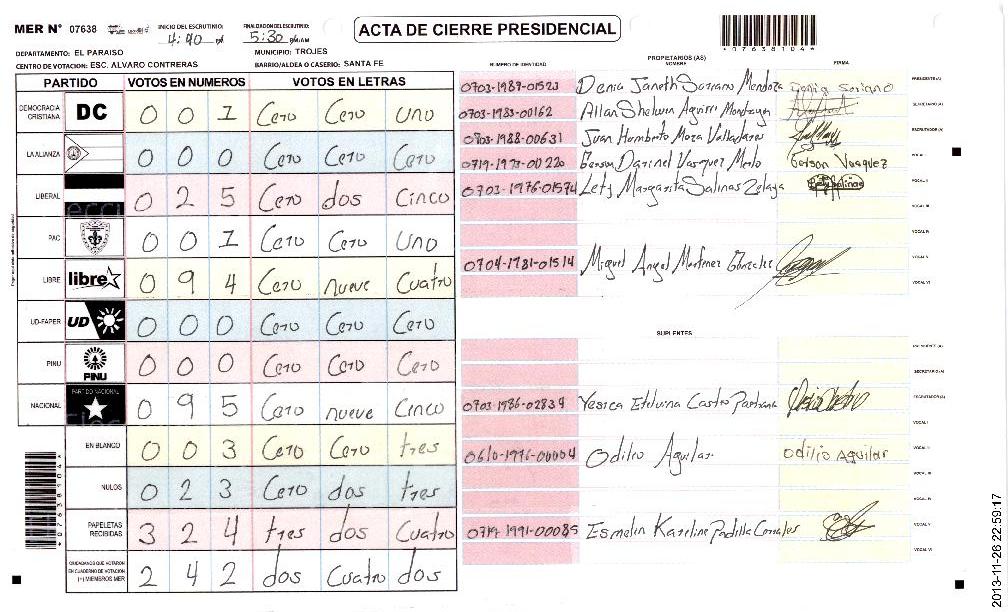 MER N° 07638 INICIO DEL ESCRUTINIO: 4:40 FINALIZACION DEL ESCRUTINIO: 5:30 pm/am
ACTA DE CIERRE PRESIDENCIAL
*07638104*
DEPARTAMENTO: EL PARAISO MUNICIPIO: TROJES
CENTRO DE VOTACION: ESC. ALVARO CONTRERAS BARRIO/ALDEA O CASERIO: SANTA FE
PARTIDO VOTOS EN NUMEROS VOTOS EN LETRAS
DEMOCRACIA CRISTIANA DC 0 0 1 Cero Cero Uno
LA ALIANZA 0 0 0 Cero Cero Cero
LIBERAL 0 2 5 Cero dos Cinco
PAC 0 0 1 Cero Cero Uno
LIBRE libre 0 9 4 Cero nueve Cuatro
UD-FAPER UD 0 0 0 Cero Cero Cero
PINU PINU 0 0 0 Cero Cero Cero
NACIONAL PARTIDO NACIONAL 0 9 5 Cero nueve Cinco
EN BLANCO 0 0 3 Cero Cero tres
NULOS 0 2 3 Cero dos tres
PAPELETAS RECIBIDAS 3 2 4 tres dos Cuatro
CIUDADANOS QUE VOTARON EN CUADERNO DE VOTACION (+) MIEMBROS MER 2 4 2 dos Cuatro dos
*07638904*
PROPIETARIOS (AS)
NUMERO DE IDENTIDAD NOMBRE FIRMA
0703-1989-01523 Denia Janeth Soriano Mendoza Denia Soriano PRESIDENTE(A)
0703-1983-00162 Allan Sheluin Aguirre SECRETARIO(A)
0703-1988-00631 Juan Humberto Meza Valladares ESCRUTADOR(A)
0719-1973-00220 Gerson Darinel Vasquez Merlo Gerson Vasquez VOCAL I
0703-1976-01574 Lety Margarita Salinas Zelaya Lety Salinas VOCAL II
VOCAL III
VOCAL IV
0704-1981-01514 Miguel Angel Martinez Gonzales VOCAL V
VOCAL VI
SUPLENTES
PRESIDENTE(A)
SECRETARIO(A)
0703-1986-02834 Yesica Etelvina Castro Pastrana ESCRUTADOR(A)
VOCAL I
0610-1996-00004 Odilio Aguilar Odilio Aguilar VOCAL II
VOCAL III
VOCAL IV
0719-1991-00085 Esmelin Karoline Padilla Corrales VOCAL V
VOCAL VI
2013-11-26 22:59:17